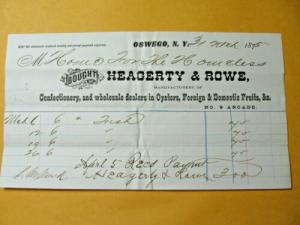 OSWEGO, N.Y. 31 Mch 1875
M Home For The Homeless
BOUGHT OF
HEAGERTY & ROWE,
MANUFACTURERS OF
Confectionery, and wholesale dealers in Oysters, Foreign & Domestic Fruits, &c.
NO. 9 ARCADE.
Mch 6 " Fish 75
12 6 " 75
19 6 " 75
26 6 " 75
April 5 Recd Paymt 3 00
Heagerty & Rowe